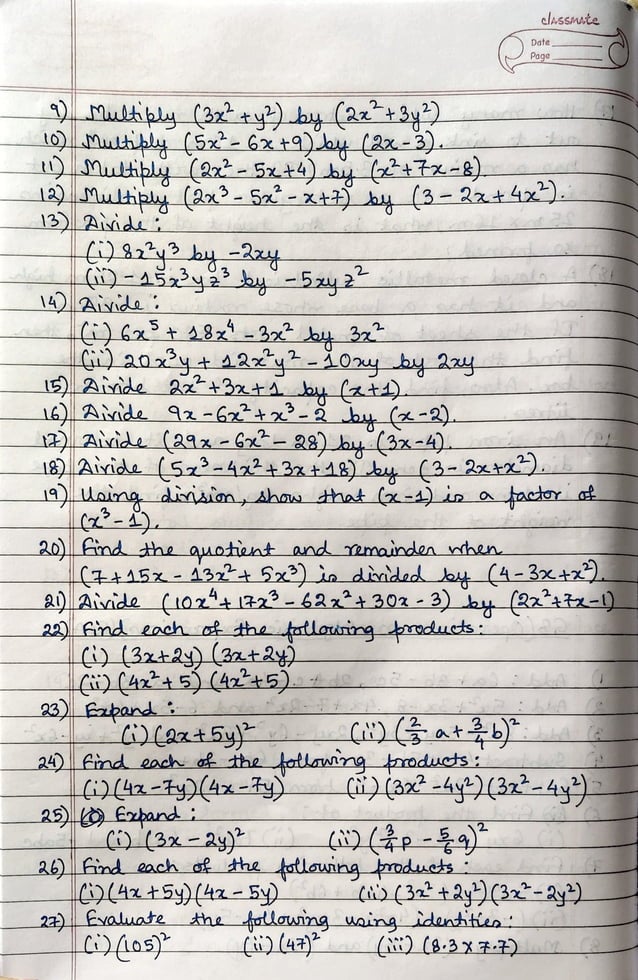 classmate
Date
Page
9) Multiply (3x² + y²) by (2x² + 3y²)
10) Multiply (5x² - 6x + 9) by (2x - 3).
11) Multiply (2x² - 5x + 4) by (x² + 7x - 8)
12) Multiply (2x³ - 5x² - x + 7) by (3 - 2x + 4x²).
13) Divide :
(i) 8x²y³ by -2xy
(ii) -15x³yz³ by -5xyz²
14) Divide :
(i) 6x⁵ + 18x⁴ - 3x² by 3x²
(ii) 20x³y + 12x²y² - 10xy by 2xy
15) Divide 2x² + 3x + 1 by (x+1).
16) Divide 9x - 6x² + x³ - 2 by (x-2).
17) Divide (29x - 6x² - 28) by (3x-4).
18) Divide (5x³ - 4x² + 3x + 18) by (3 - 2x + x²).
19) Using division, show that (x-1) is a factor of
(x³ - 1).
20) Find the quotient and remainder when
(7 + 15x - 13x² + 5x³) is divided by (4 - 3x + x²).
21) Divide (10x⁴ + 17x³ - 62x² + 30x - 3) by (2x² + 7x - 1)
22) Find each of the following products :
(i) (3x+2y) (3x+2y)
(ii) (4x² + 5) (4x² + 5).
23) Expand :
(i) (2x + 5y)² (ii) (2/3 a + 3/4 b)²
24) Find each of the following products :
(i) (4x - 7y) (4x - 7y) (ii) (3x² - 4y²) (3x² - 4y²)
25) Expand :
(i) (3x - 2y)² (ii) (3/4 p - 5/6 q)²
26) Find each of the following products :
(i) (4x + 5y) (4x - 5y) (ii) (3x² + 2y²) (3x² - 2y²)
27) Evaluate the following using identities :
(i) (105)² (ii) (47)² (iii) (8.3 x 7.7)